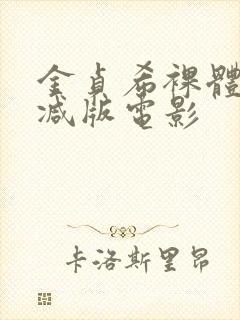 金貞希裸體
减版電影
卡洛斯里昂